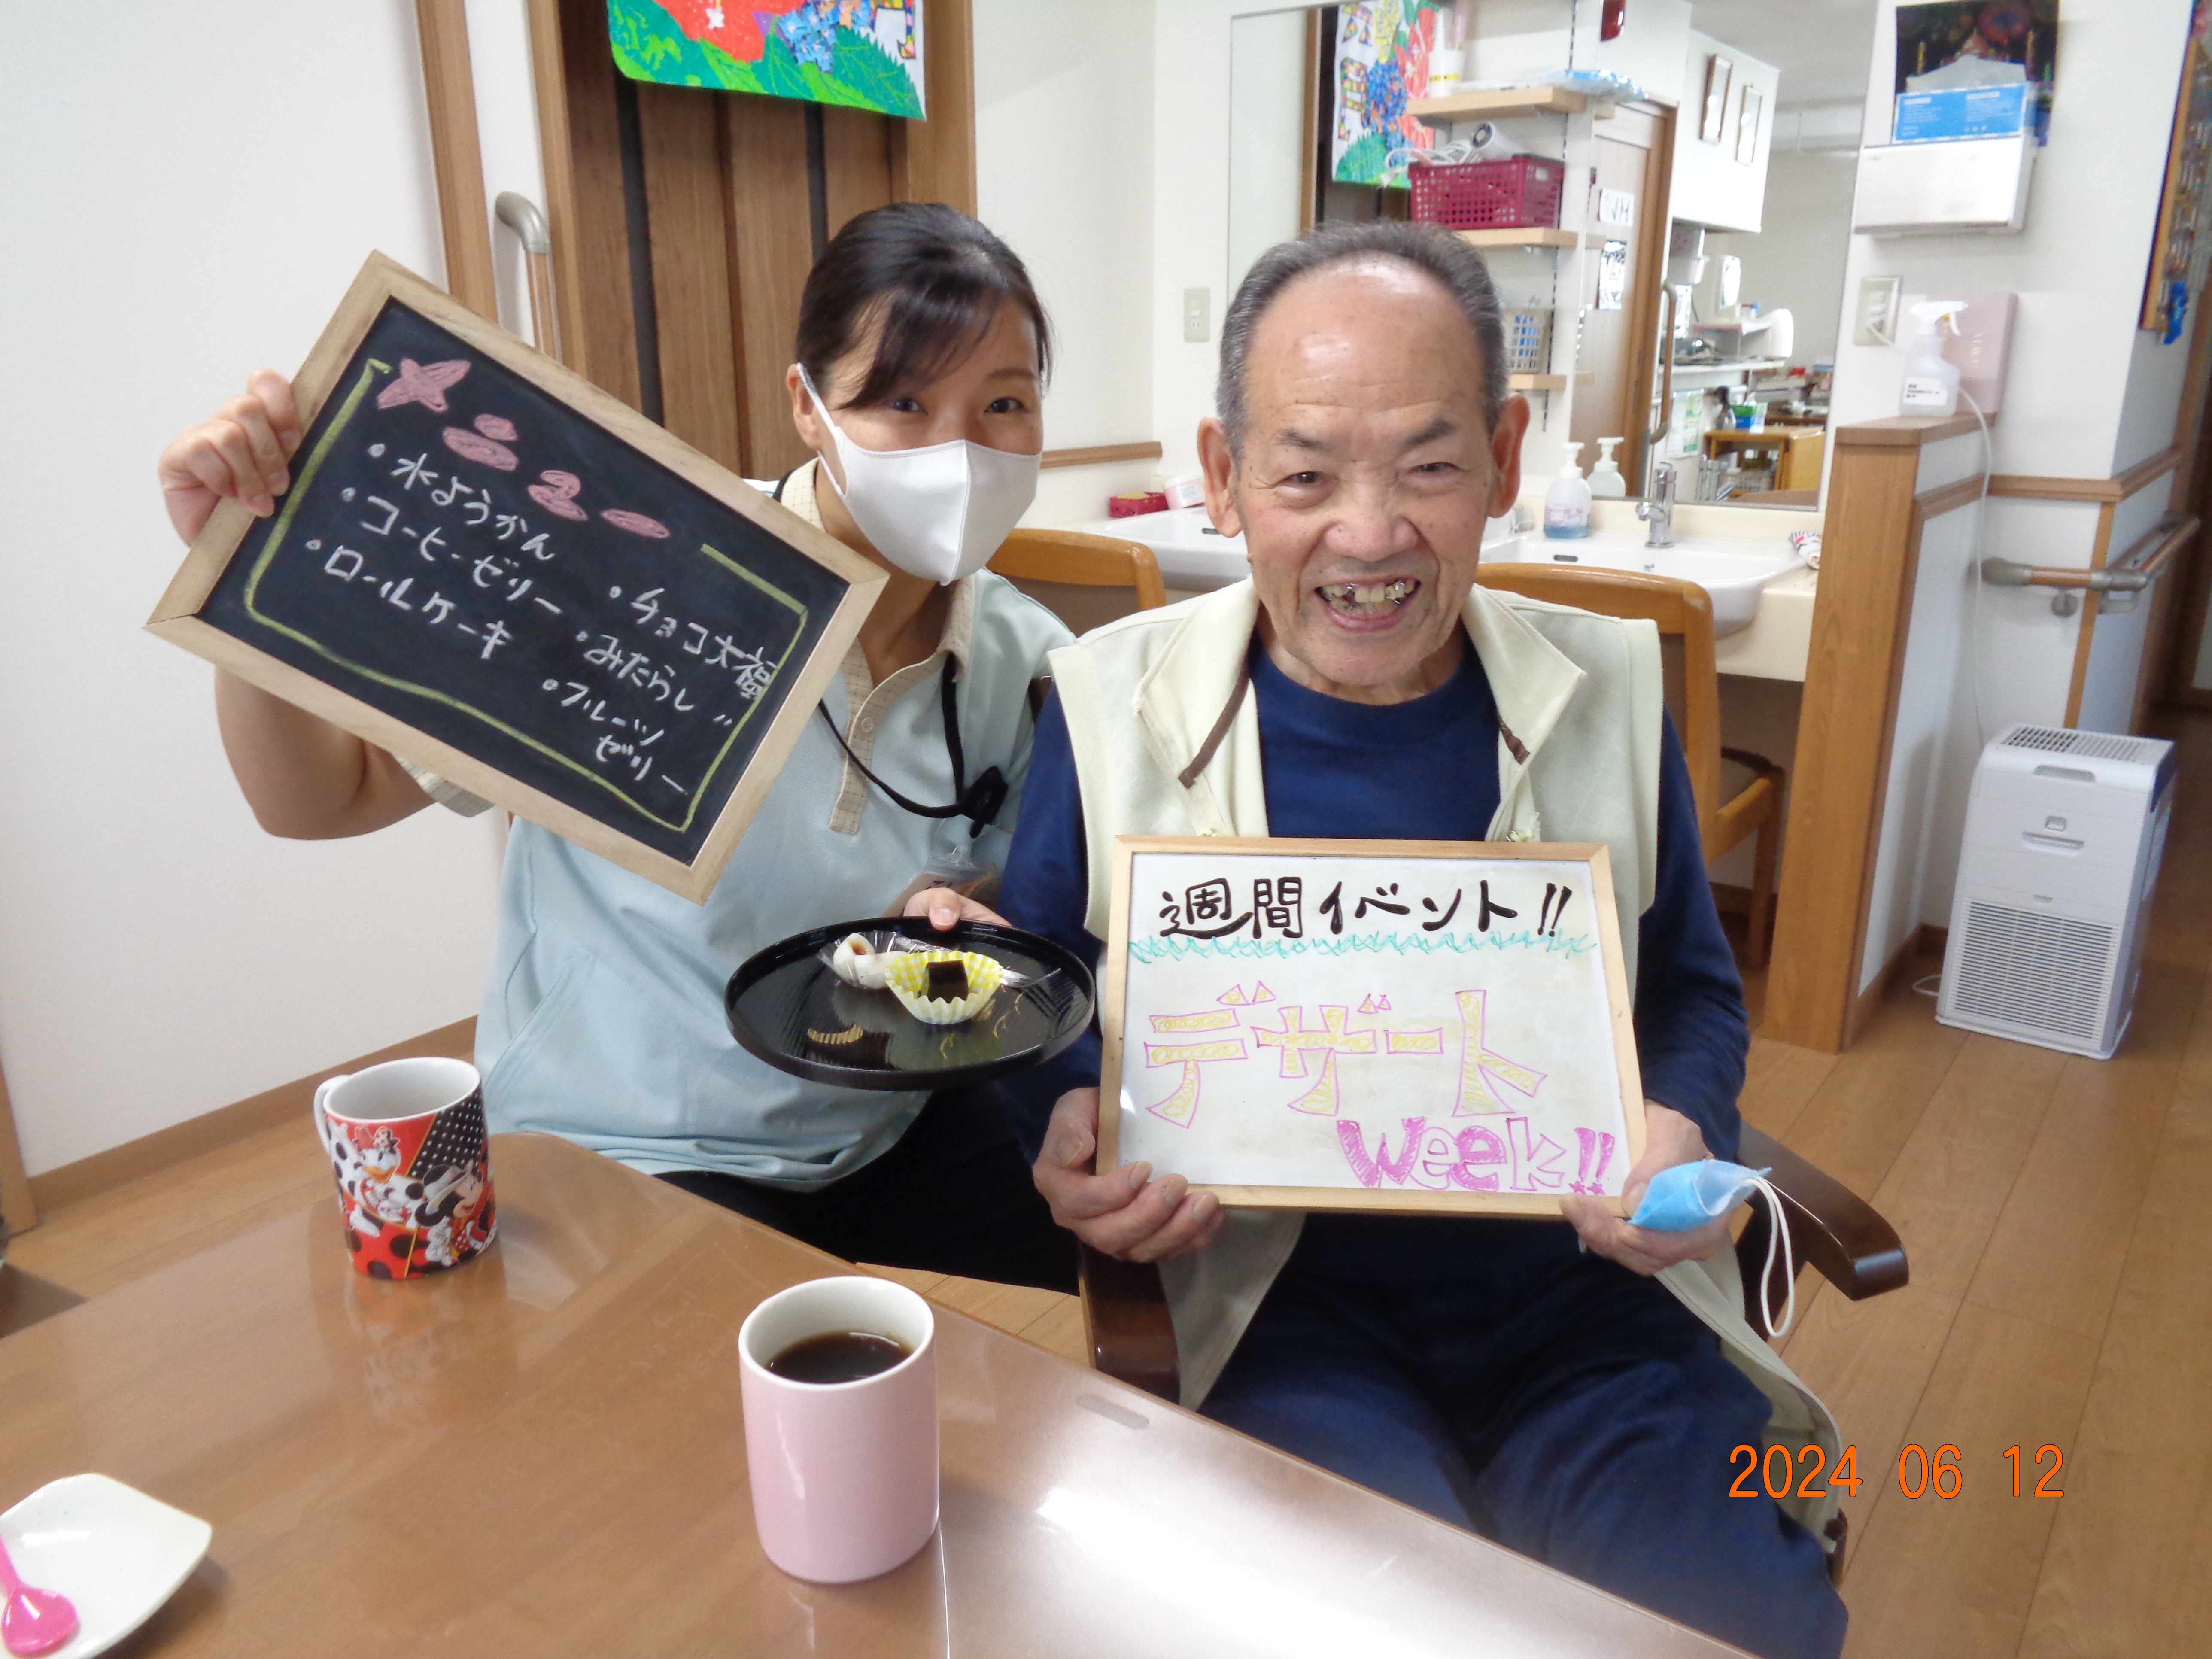 メニュー
・水ようかん
・コーヒーゼリー
・ロールケーキ
・チョコ大福
・みたらし〃
・フルーツ
ゼリー
週間イベント!!
デザート
Week!!
2024 06 12